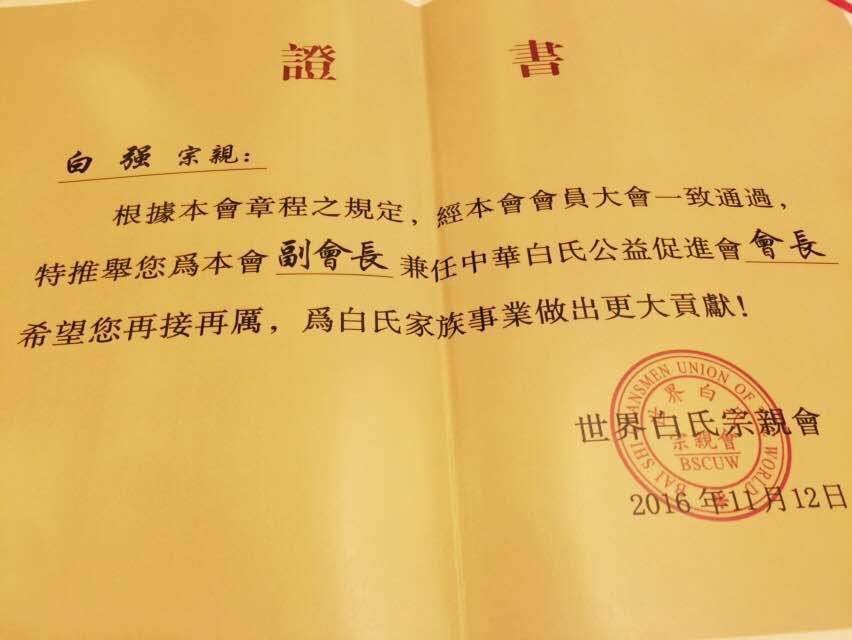 證書
白强宗親：
根據本會章程之規定，經本會會員大會一致通過，
特推舉您爲本會副會長兼任中華白氏公益促進會會長
希望您再接再厲，爲白氏家族事業做出更大貢獻！
世界白氏宗親會
2016年11月12日
BAI SHI CLANSMEN UNION OF THE WORLD
世界白氏
宗親會
BSCUW